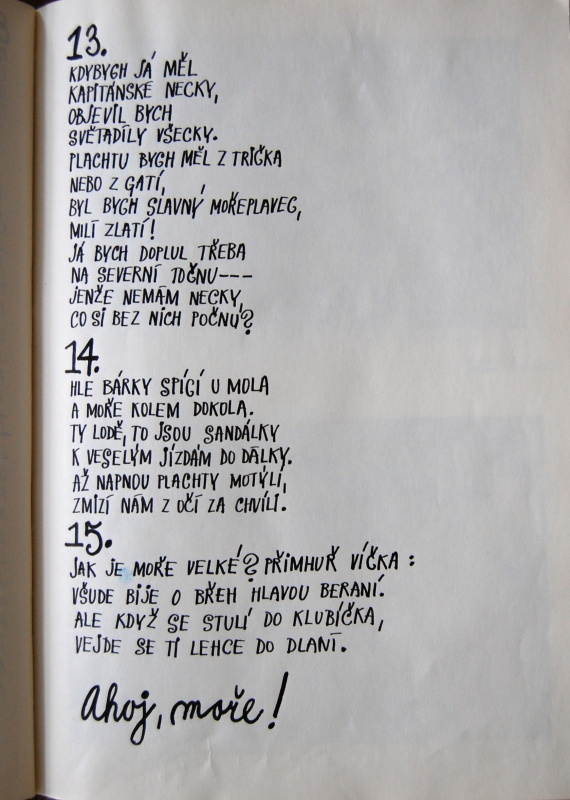 13.
KDYBYCH JÁ MĚL
KAPITÁNSKÉ NECKY,
OBJEVIL BYCH
SVĚTADÍLY VŠECKY.
PLACHTU BYCH MĚL Z TRIČKA
NEBO Z GATÍ,
BYL BYCH SLAVNÝ MOŘEPLAVEC,
MILÍ ZLATÍ!
JÁ BYCH DOPLUL TŘEBA
NA SEVERNÍ TOČNU---
JENŽE NEMÁM NECKY,
CO SI BEZ NICH POČNU?
14.
HLE BÁRKY SPÍCÍ U MOLA
A MOŘE KOLEM DOKOLA.
TY LODĚ, TO JSOU SANDÁLKY
K VESELÝM JÍZDÁM DO DÁLKY.
AŽ NAPNOU PLACHTY MOTÝLÍ,
ZMIZÍ NÁM Z OČÍ ZA CHVÍLI.
15.
JAK JE MOŘE VELKÉ? PŘIMHUŘ VÍČKA:
VŠUDE BIJE O BŘEH HLAVOU BERANÍ.
ALE KDYŽ SE STULÍ DO KLUBÍČKA,
VEJDE SE TI LEHCE DO DLANÍ.
Ahoj, moře!